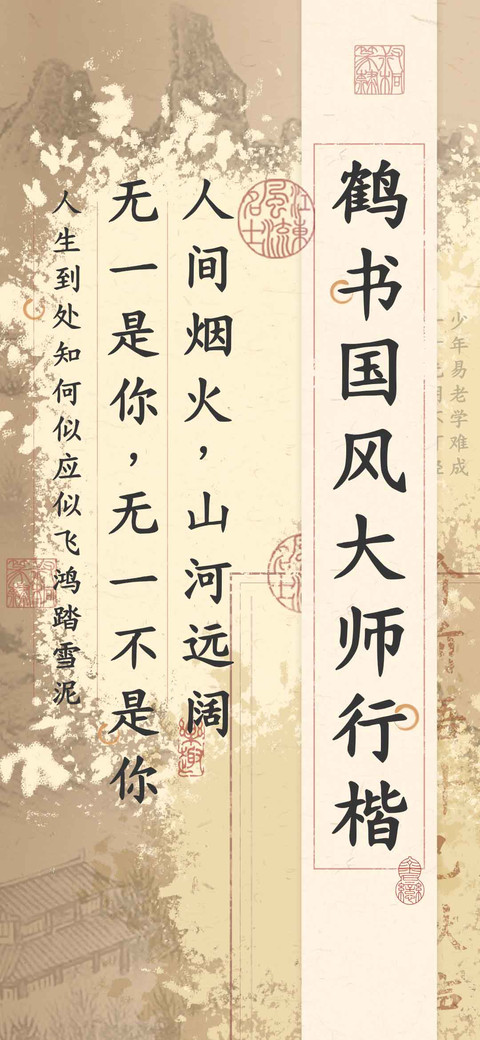 少年易老学难成
鹤书国风大师行楷
人间烟火，山河远阔
无一是你，无一不是你
人生到处知何似应似飞鸿踏雪泥
江东
风流
名士